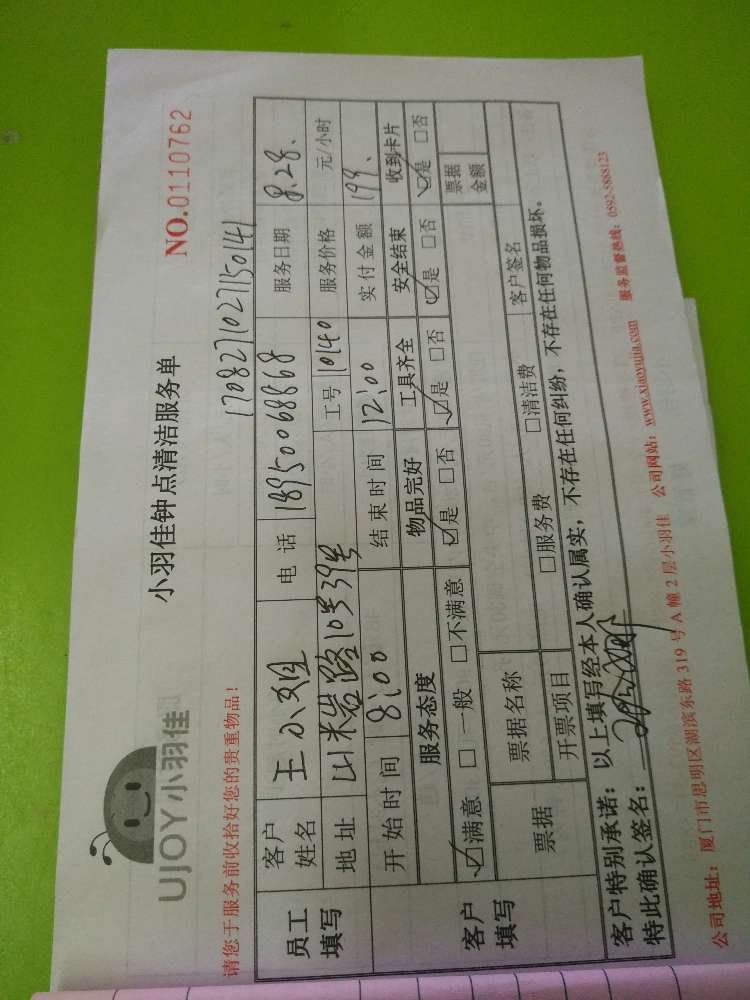 UJOY小羽佳
小羽佳钟点清洁服务单
NO.0110762
请您于服务前收拾好您的贵重物品！
17082710271150141
员工填写
客户姓名 王小姐 电话 18950068868 服务日期 8.28.
地址 路10号39号 工号 10140 服务价格 元/小时
开始时间 8:00 结束时间 12:00 实付金额 199.
客户填写
服务态度 物品完好 工具齐全 安全结束 收到卡片
☑满意 □一般 □不满意 ☑是 □否 ☑是 □否 ☑是 □否 ☑是 □否
票据 票据名称 票据金额
开票项目 □服务费 □清洁费 客户签名
客户特别承诺：以上填写经本人确认属实，不存在任何纠纷，不存在任何物品损坏。
特此确认签名：
公司地址：厦门市思明区湖滨东路 319 号 A 幢 2 层小羽佳 公司网站：www.xiaoyujia.com 服务监督热线：0592-5888123